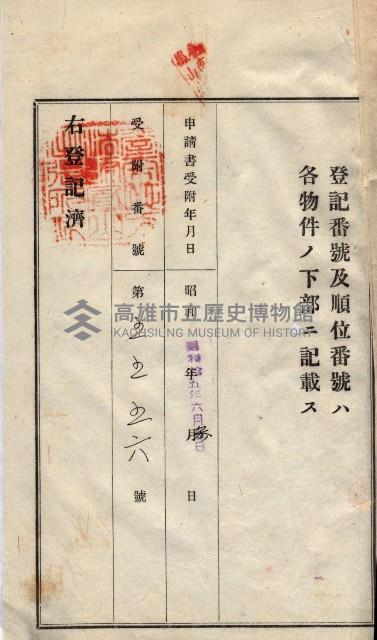 登記番號及順位番號ハ
各物件ノ下部ニ記載ス
申請書受附年月日
昭和 年 月 日
五年六月 日
受附番號
第五五五六號
右登記濟
高雄市立歷史博物館
KAOHSIUNG MUSEUM OF HISTORY